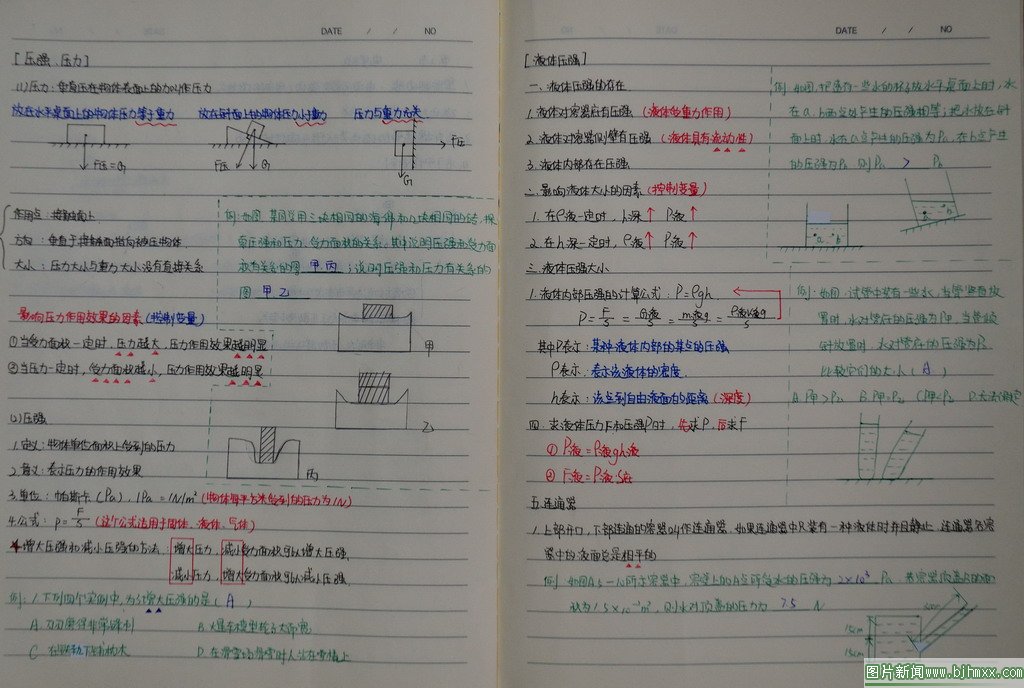 DATE / / NO
[压强、压力]
(1)压力：垂直压在物体表面上的力叫作压力
放在水平桌面上的物体压力等于重力 放在斜面上的物体压力小于重力 压力与重力无关
F压=G F压 G G F压
作用点：接触面上
方向：垂直于接触面指向被压物体
大小：压力大小与重力大小没有直接关系
例：如图 某同学用三块相同的海绵和几块相同的砖，探
究压强和压力、受力面积的关系，其中说明压强和受力面
积有关系的图 甲丙 ；说明压强和压力有关系的
图 甲乙
影响压力作用效果的因素(控制变量)
①当受力面积一定时，压力越大，压力作用效果越明显
甲
②当压力一定时，受力面积越小，压力作用效果越明显
乙
(2)压强
1.定义：物体单位面积上受到的压力
2.意义：表示压力的作用效果
丙
3.单位：帕斯卡(Pa)，1Pa=1N/m² (物体每平方米受到的压力为1N)
4.公式：P=F/S (这个公式适用于固体、液体、气体)
增大压强和减小压强的方法：增大压力，减小受力面积可以增大压强
减小压力，增大受力面积可以减小压强
例：1.下列四个实例中，为了增大压强的是(A)
A.刀刃磨得非常锋利
C
D.在滑雪场滑雪时人站在雪橇上
DATE / / NO
[液体压强]
一、液体压强的存在
1.液体对容器底有压强 (液体受重力作用)
2.液体对容器侧壁有压强 (液体具有流动性)
3.液体内部存在压强
例 如图，把盛有一些水的杯子放水平桌面上时，水
在a，b两点处产生的压强相等；把水放在斜
面上时，水在a点产生的压强为Pa，在b点产生
的压强为Pb 则Pa > Pb
二、影响液体大小的因素(控制变量)
1.在ρ液一定时，h深↑ P液↑
2.在h深一定时，ρ液↑ P液↑
a b
三、液体压强大小
1.液体内部压强的计算公式：P=ρgh
P=F/S=G液/S=m液g/S=ρ液V液g/S
其中P表示：某种液体内部的某点的压强
ρ表示：表示该液体的密度
h表示：该点到自由液面的距离(深度)
例：如图：试管中装有一些水，当管竖直放
置时，水对管底的压强为P甲，当管倾
斜放置时，水对管底的压强为P乙
比较它们的大小(A)
A.P甲>P乙 B.P甲=P乙 C.P甲<P乙 D.无法确定
四、求液体压力F和压强P时，先求P，后求F
① P液=ρ液gh液
② F液=P液S底
五、连通器
1.上部开口，下部连通的容器叫作连通器，如果连通器中只装有一种液体时并且静止，连通器各容
器中的液面总是相平的
例 如图A是一个所示容器中，容器上的A点所受水的压强为 2×10³ Pa
积为1.5×10⁻²m²，则水对顶盖的压力为 7.5 N
15cm
15cm
图片新闻www.bjhmxx.com